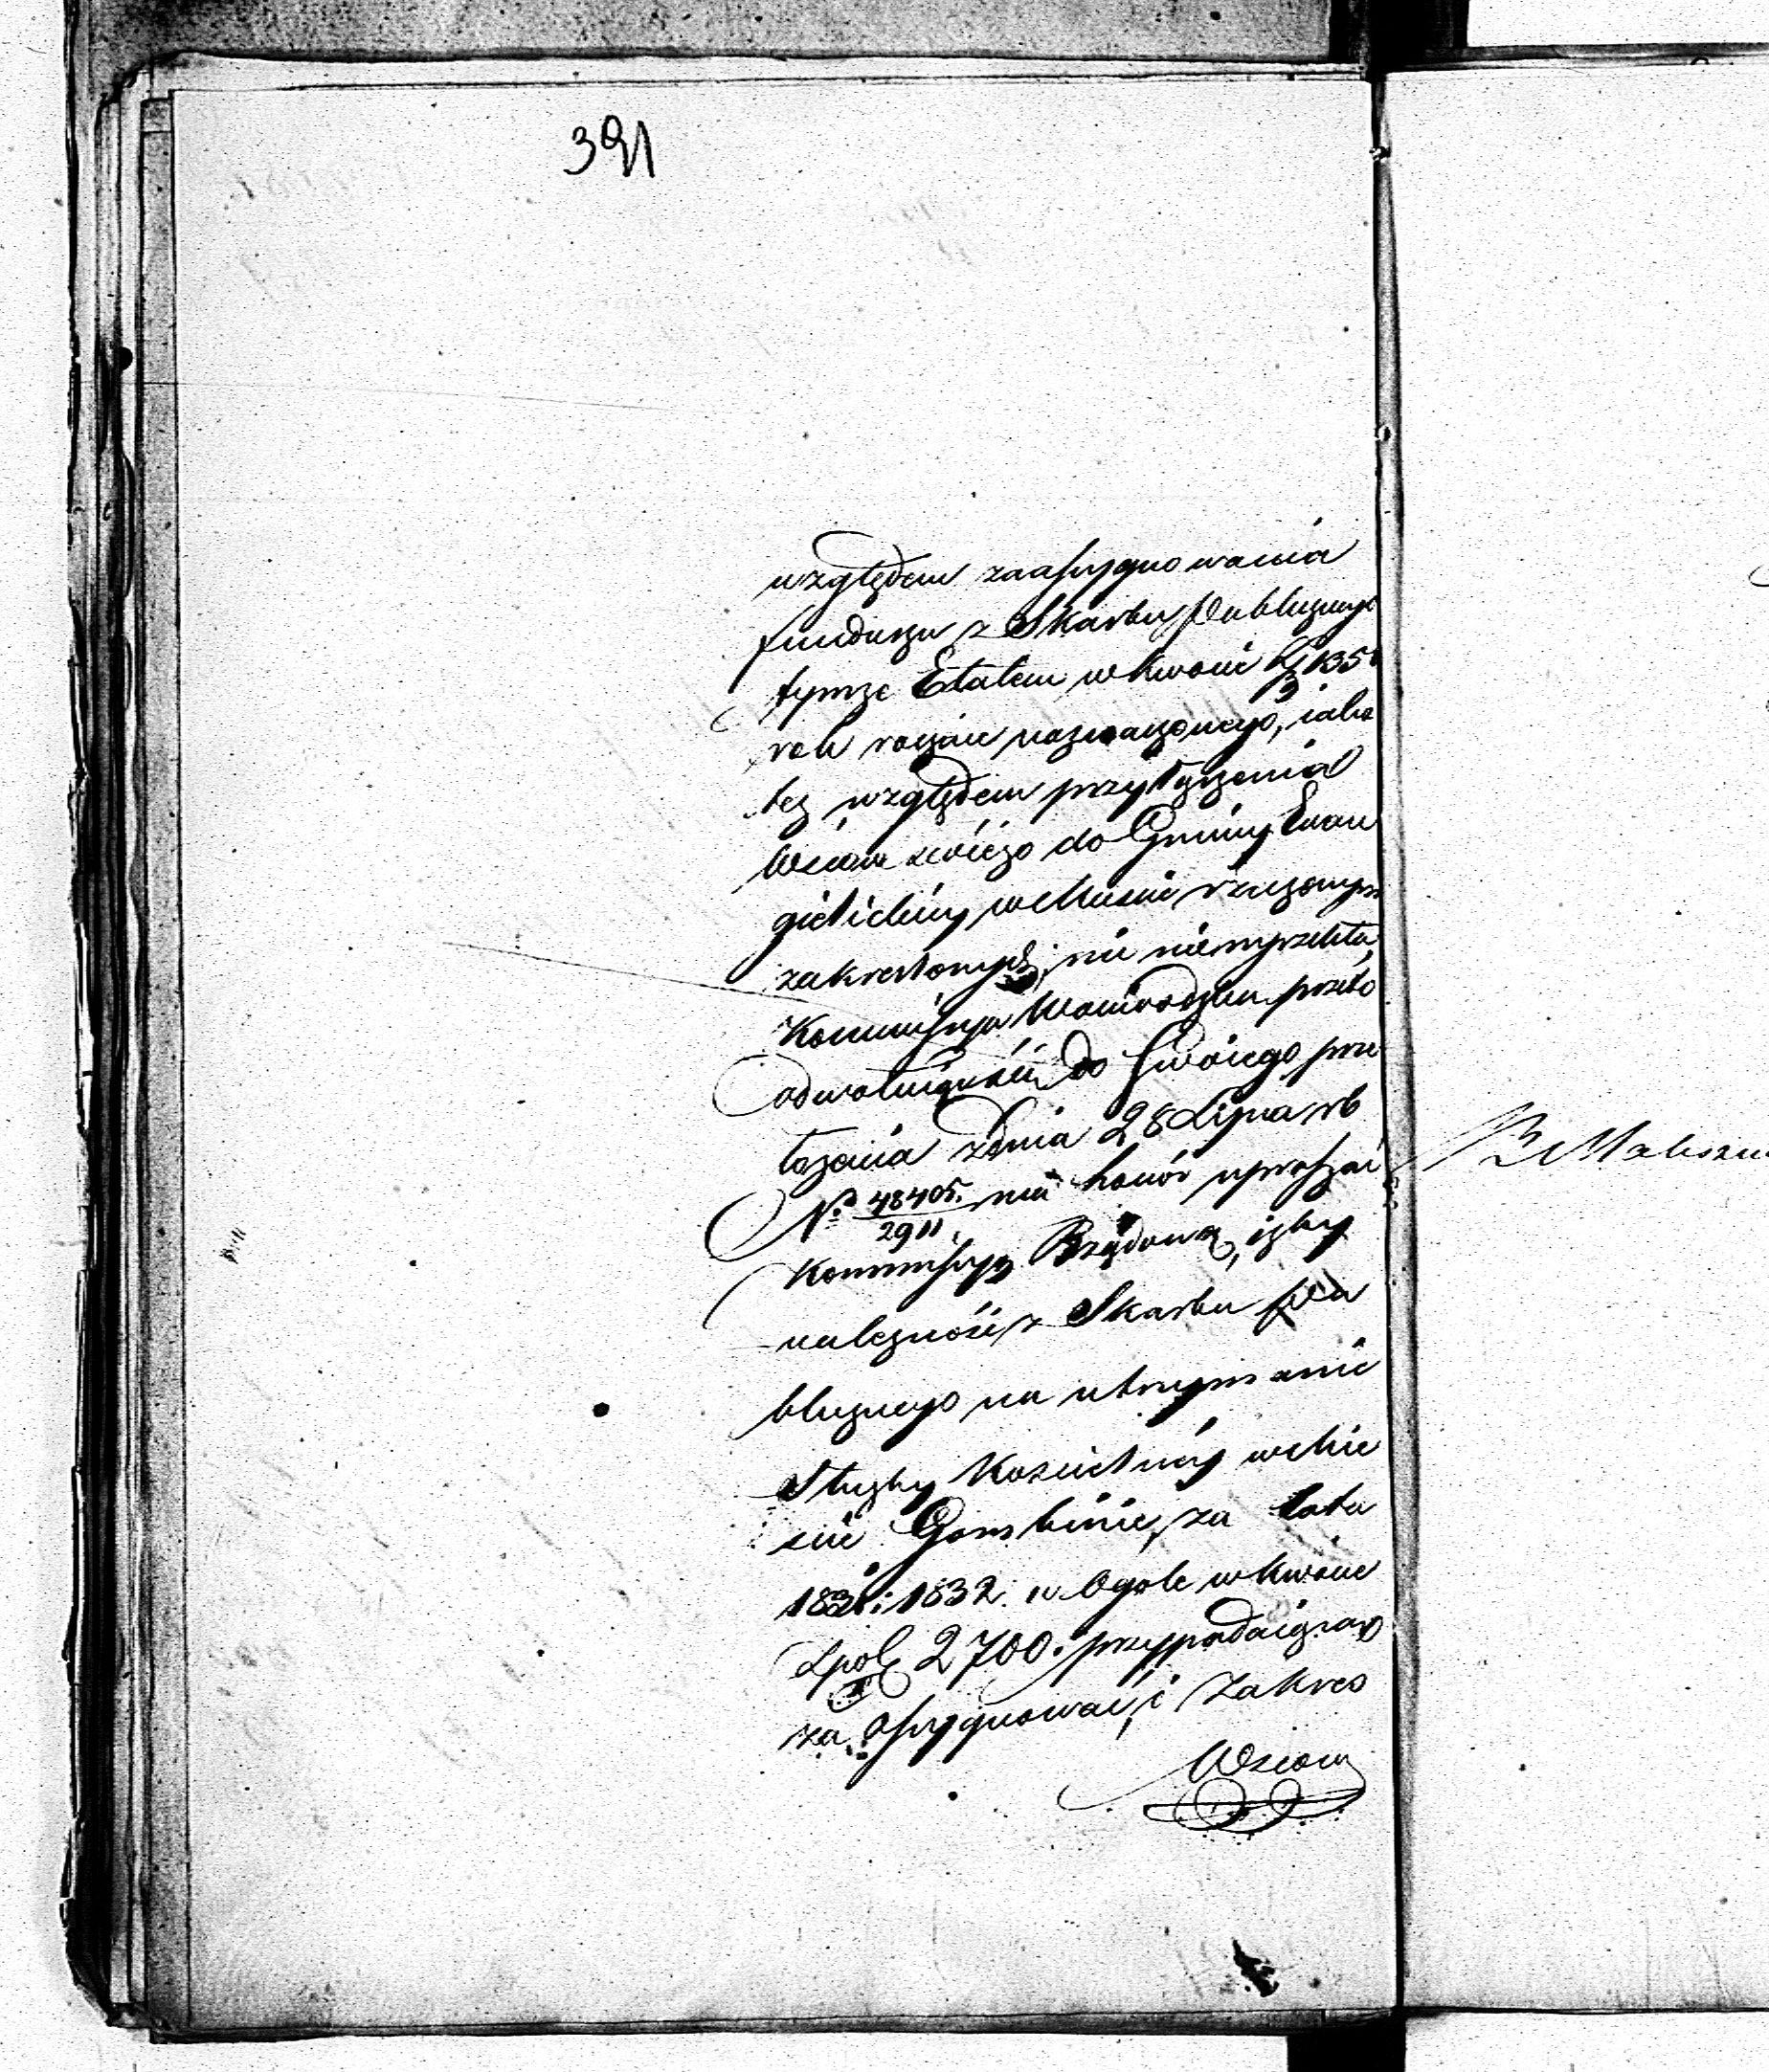 391
względem zaassygnowania
funduszu z Skarbu Publicznego
tymże Etatem w kwocie
rok rocznie naznaczonego, iako
też względem przyłączenia
Wsiów do Gminy Ewan
gielickiéy w Mieście rzeczonym
zakreślonym nie nie wyrzekła,
Kommissya Woiewódzka przeto
odwołuiąc się do swoiego prze
łożenia z dnia 28 Lipca rb
No 48405./2911. ma honór upraszać
Kommissyę Rządową, iżby
należność z Skarbu Pu
blicznego na utrzymanie
Służby Kościelnéy w Mie
ście Gombinie, za lata
1831 i 1832. w Ogóle w kwocie
złpol 2700. przypadaiącą
za assygnować, i zakres
Wsiow